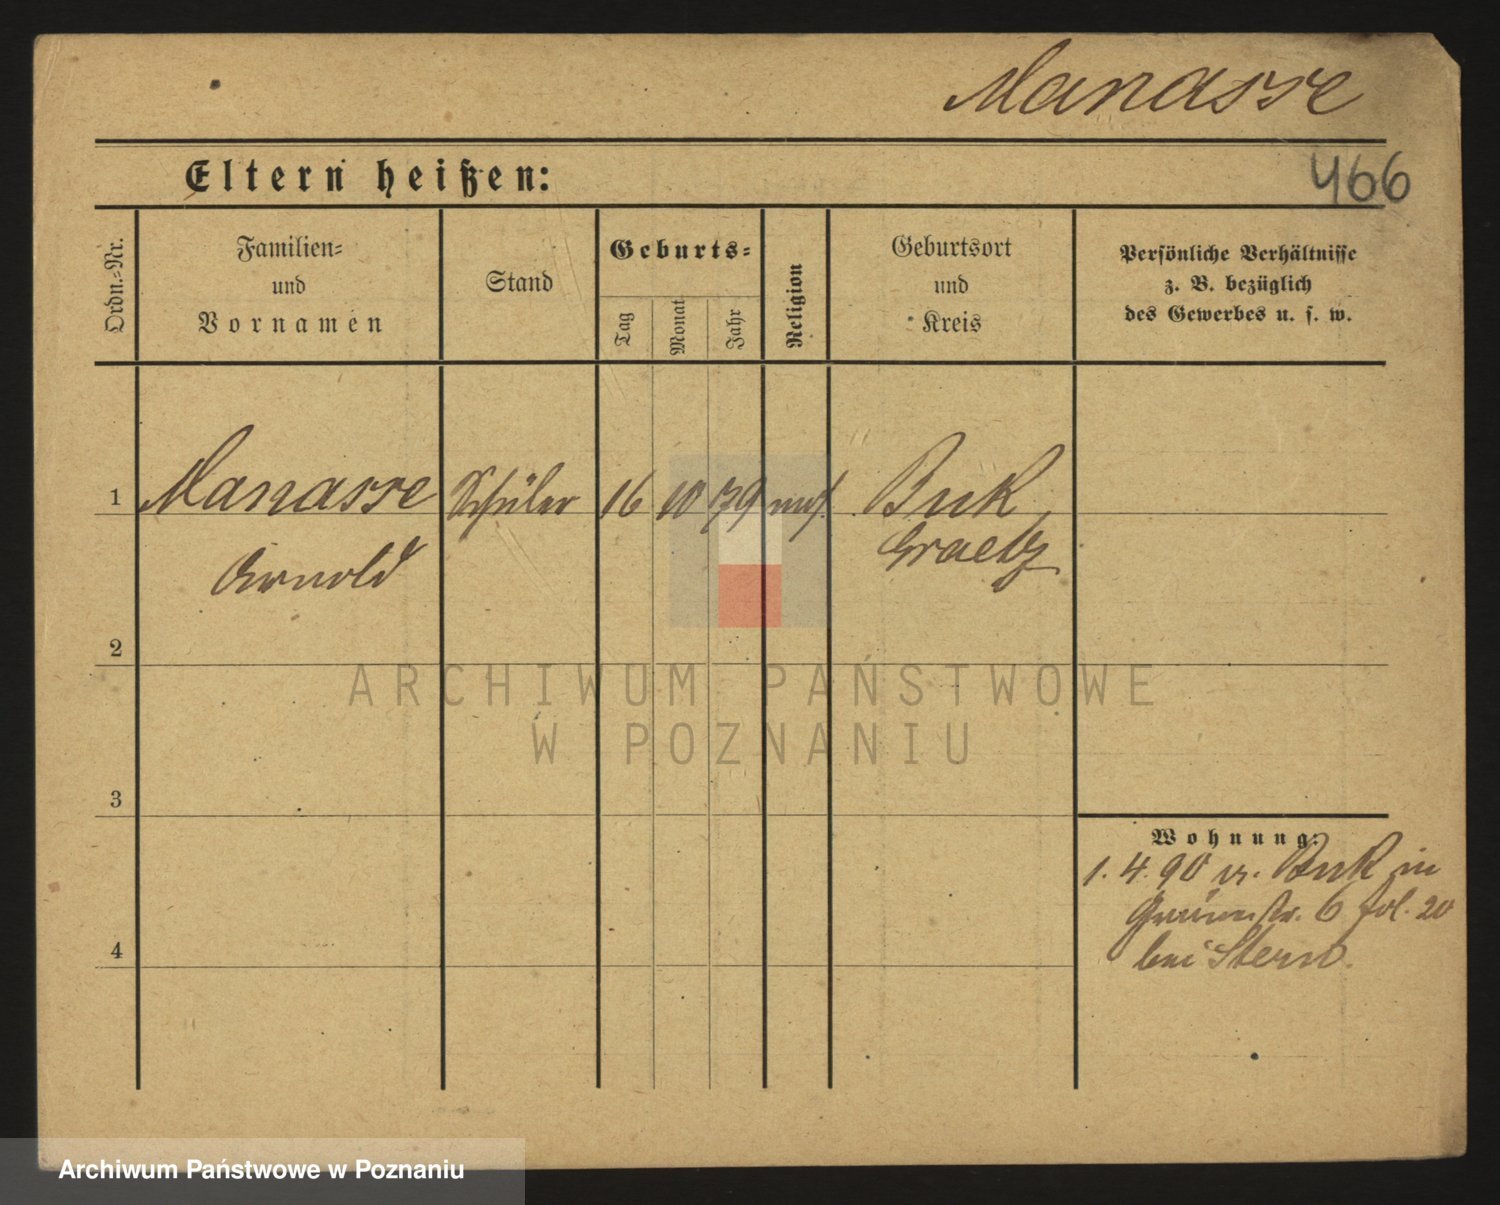 Manasse
Eltern heißen:
466
Ordn.-Nr.
Familien-
und
Vornamen
Stand
Geburts-
Tag
Monat
Jahr
Religion
Geburtsort
und
Kreis
Persönliche Verhältnisse
z. B. bezüglich
des Gewerbes u. s. w.
1 Manasse Schüler 16 10 79 mos. Buk
Arnold Graetz
2
3
4
Wohnung:
1. 4. 90 v. Buk in
str. 6 fol. 20
bei Stern.
ARCHIWUM PAŃSTWOWE
W POZNANIU
Archiwum Państwowe w Poznaniu